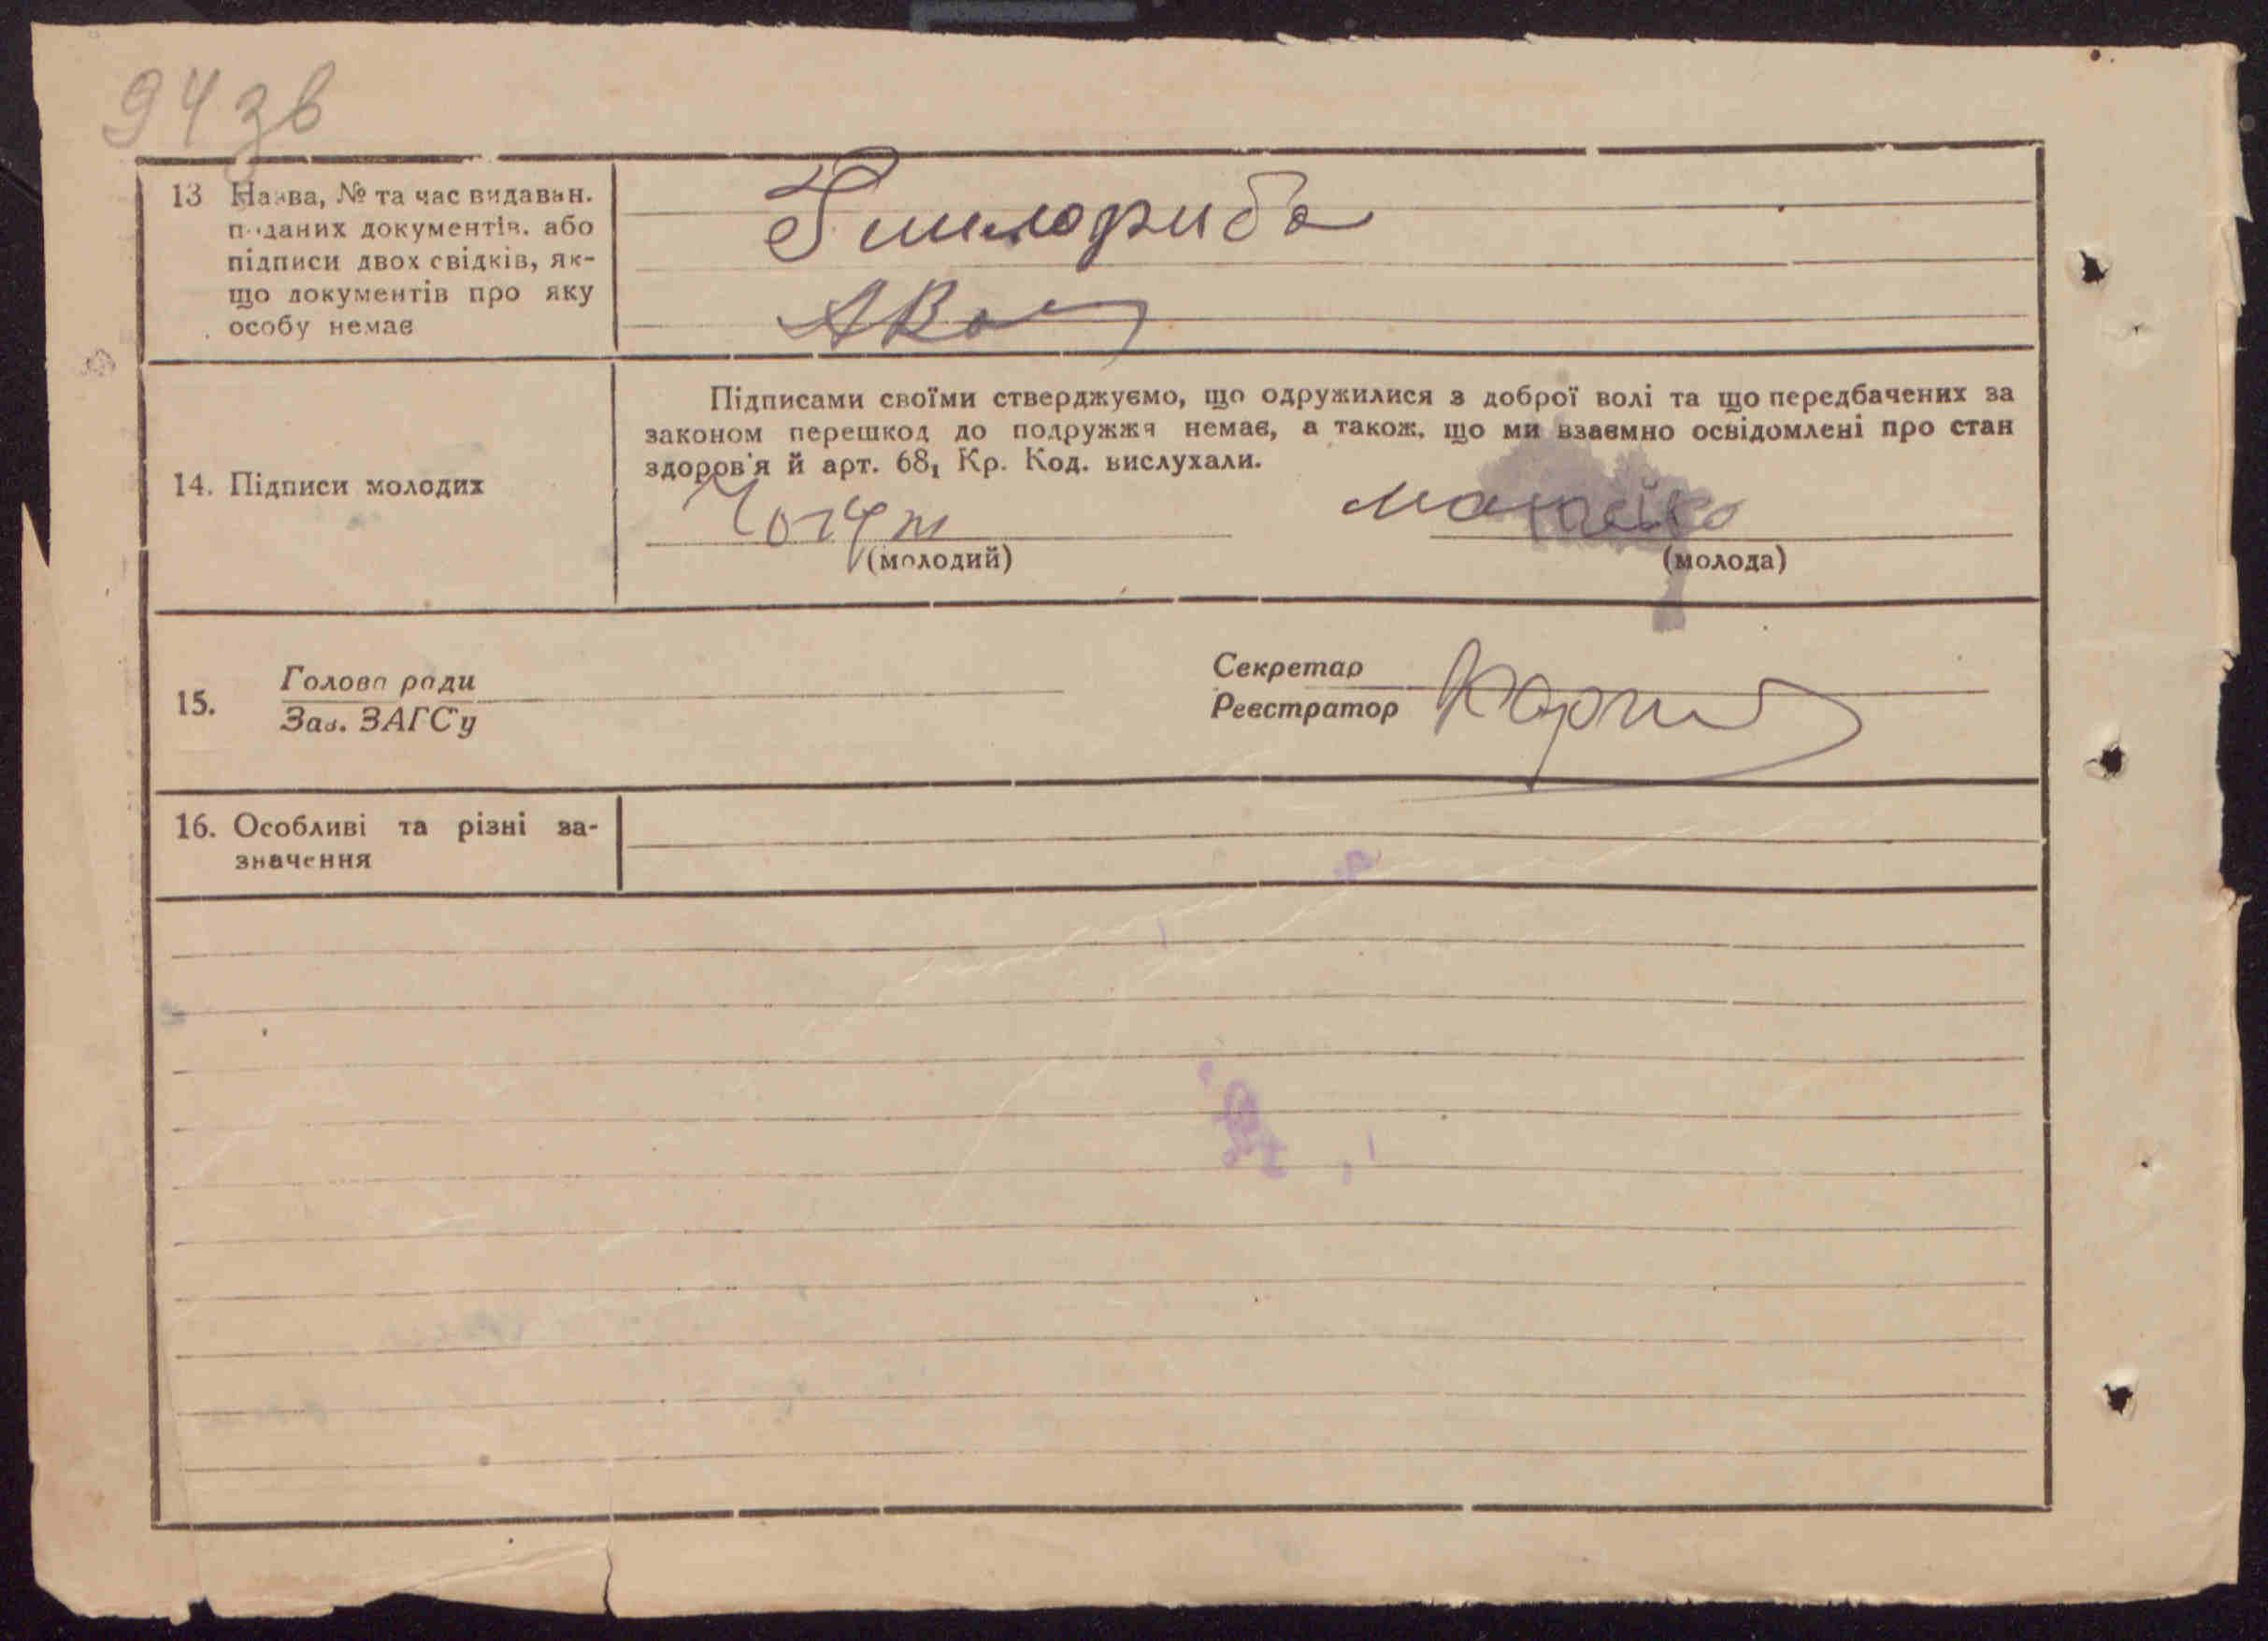 94 зв
13 Назва, № та час видаван.
поданих документів, або
підписи двох свідків, як-
що документів про яку
особу немає
14. Підписи молодих
Підписами своїми стверджуємо, що одружилися з доброї волі та що передбачених за
законом перешкод до подружжя немає, а також, що ми взаємно освідомлені про стан
здоров'я й арт. 68₁ Кр. Код. вислухали.
(молодий)
(молода)
15.
Голова ради
Зав. ЗАГС'у
Секретар
Реєстратор
16. Особливі та різні за-
значення